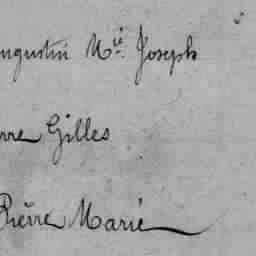 ugustin M.ie Joseph
rre Gilles
Pierre Marie